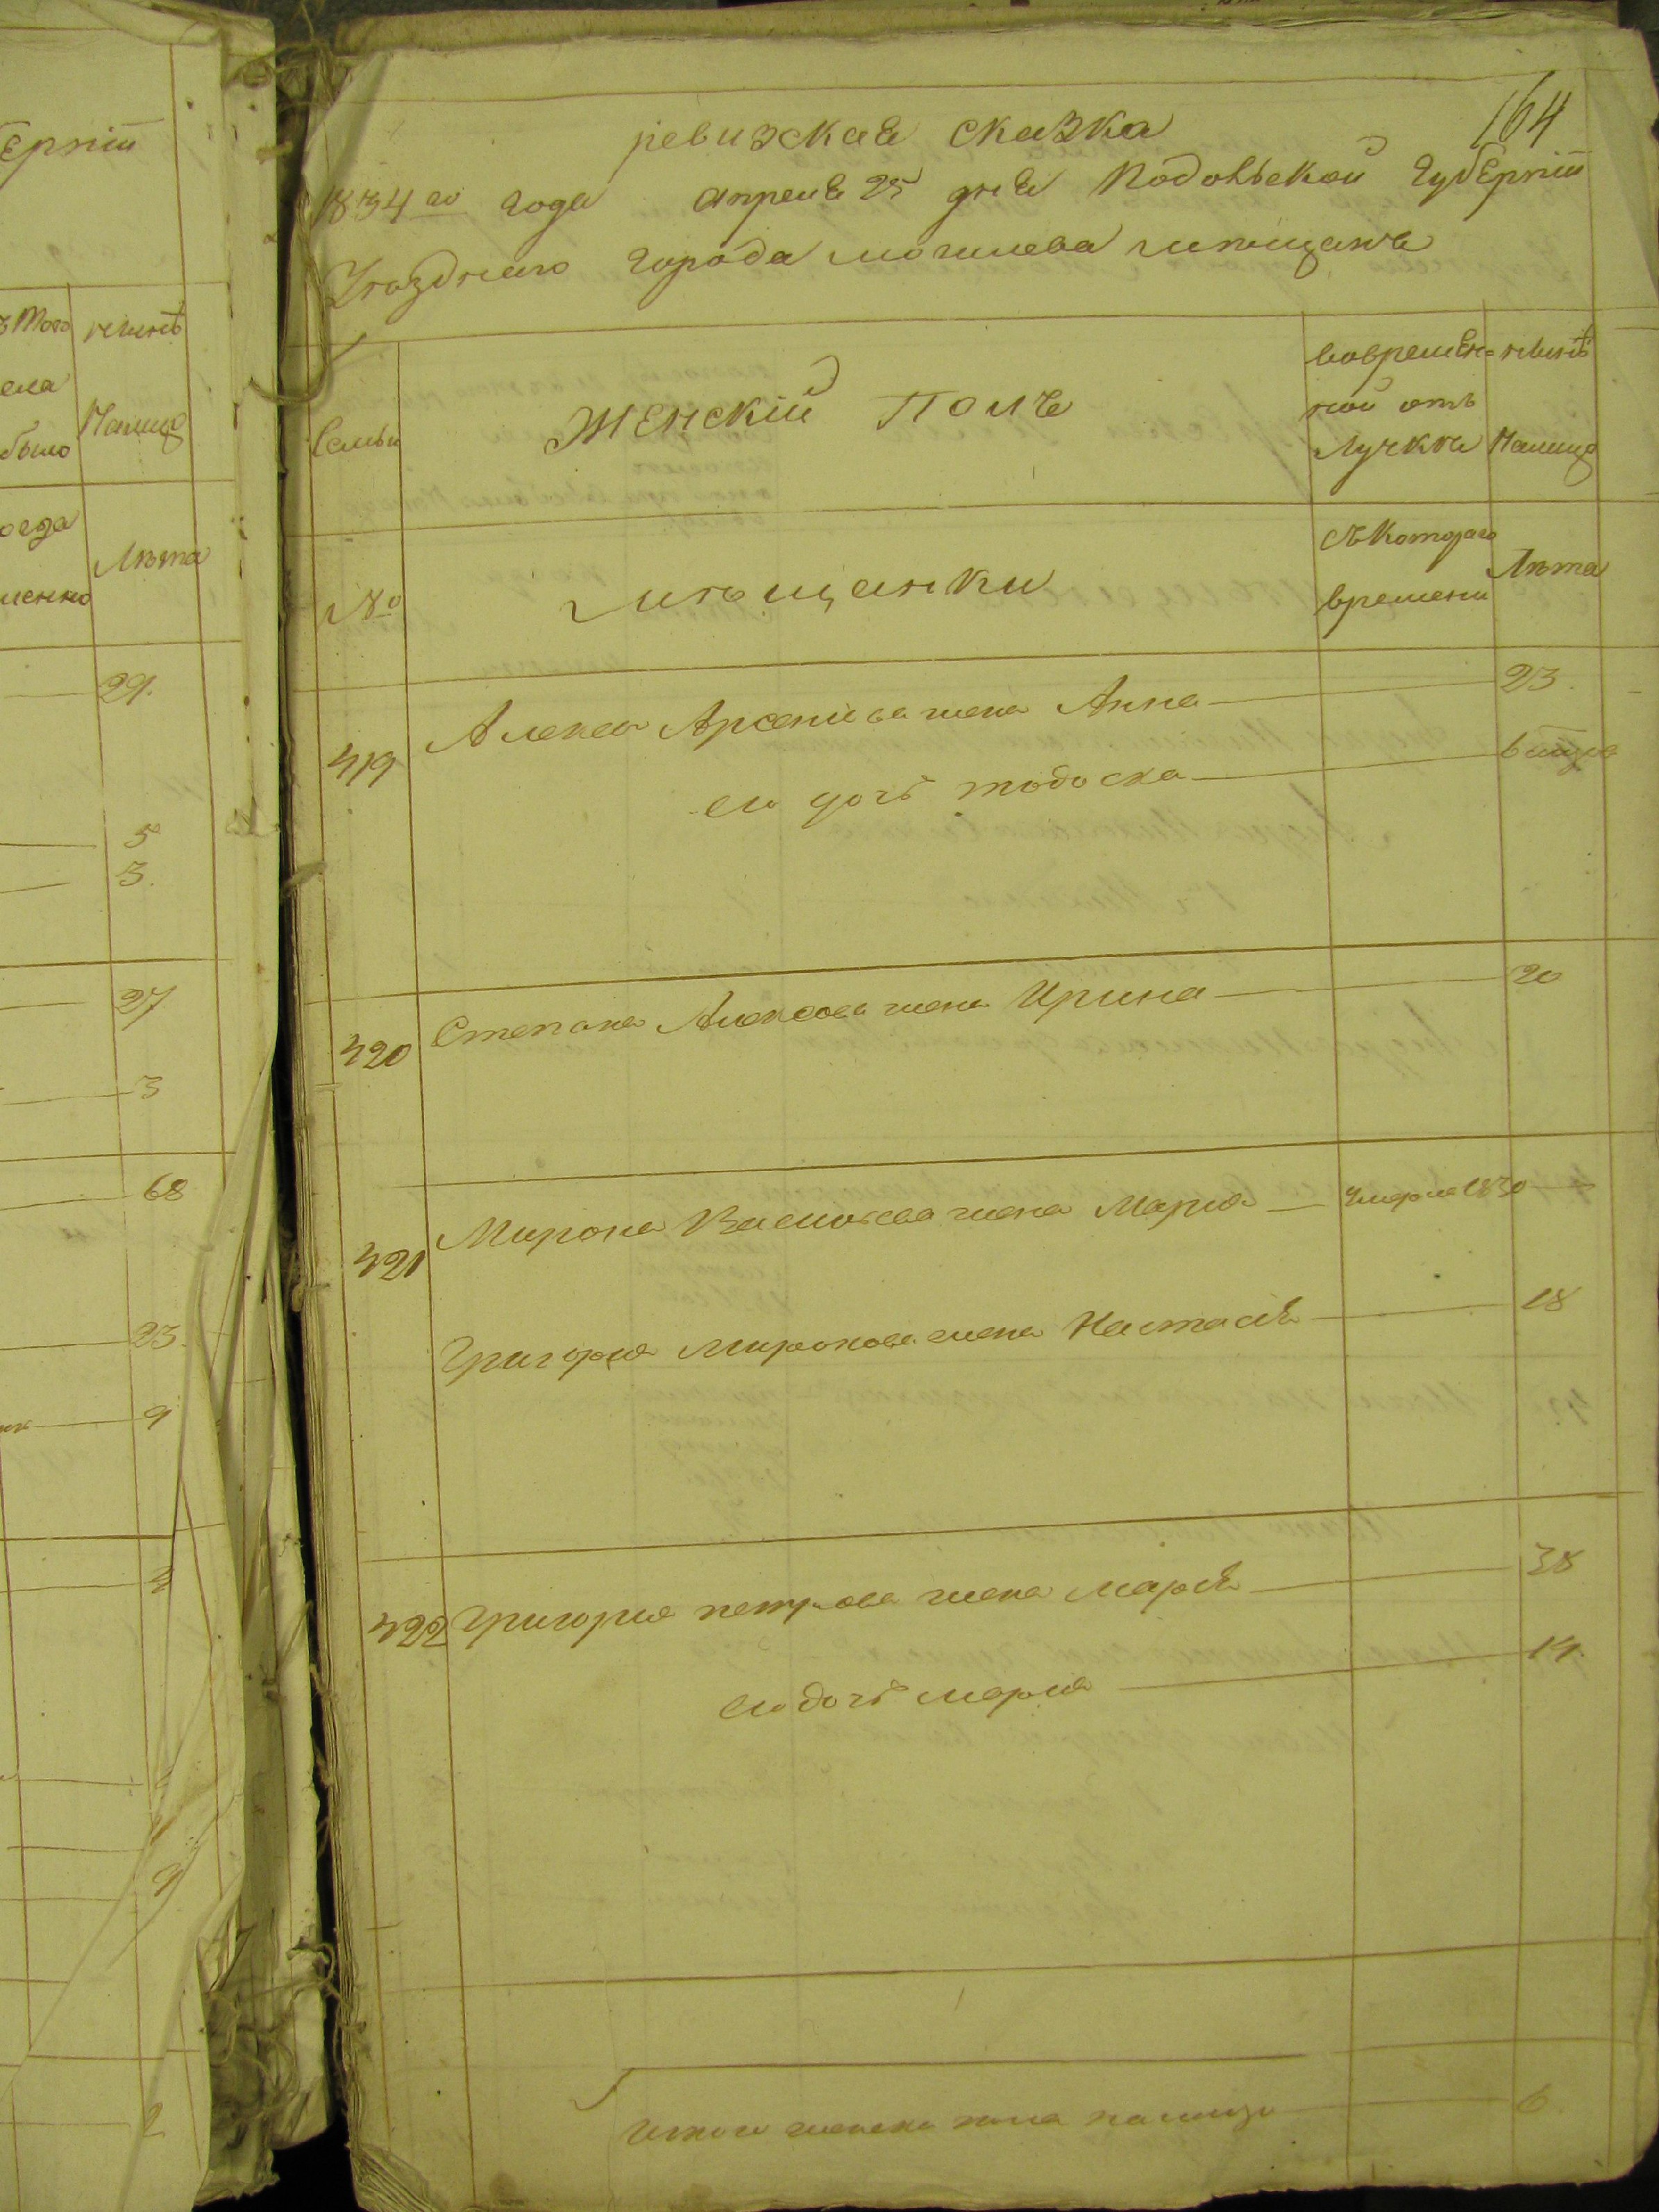 164
ревизская сказка
1834го года апреля 25 дня Подольской Губернiи
Уѣзднаго города могилева мѣщанъ
Семьи
Женскiй Полъ
вовремен=
ной отъ
лучкѣ
нынѣ
Налицо
№о
мѣщанки
съ котораго
времени
Лѣта
419
Алексея Арсениева жена Анна 23.
его дочь тодоска
420
Степана Алексеева жена Ирина 20
421
Мирона Васильева жена Мария Умерла 1830
Григория миронова жена Настасiя 18
422
Григория петрова жена марiя 38
его дочь мария 14.
итого женска пола налицо 6.
ернiи
того
нынѣ
ела
было
Налицо
огда
менно
Лѣта
29.
5
3.
27
3
68
23.
9